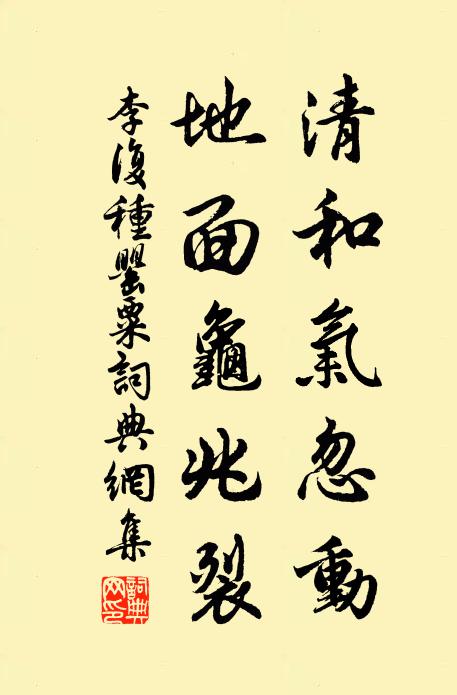 清和氣忽動
地面龜兆裂
李復種罌粟詞典網集
詞典網印